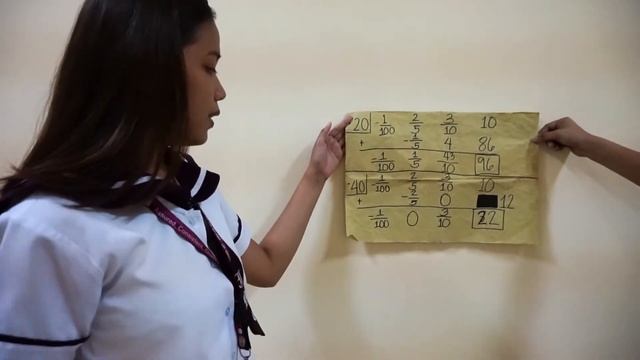 20 -1/100 2/5 3/10 10
+ -1/5 4 86
-1/100 1/5 43/10 96
40 -1/100 2/5 3/10 10
+ -2/5 0 12
-1/100 0 3/10 22